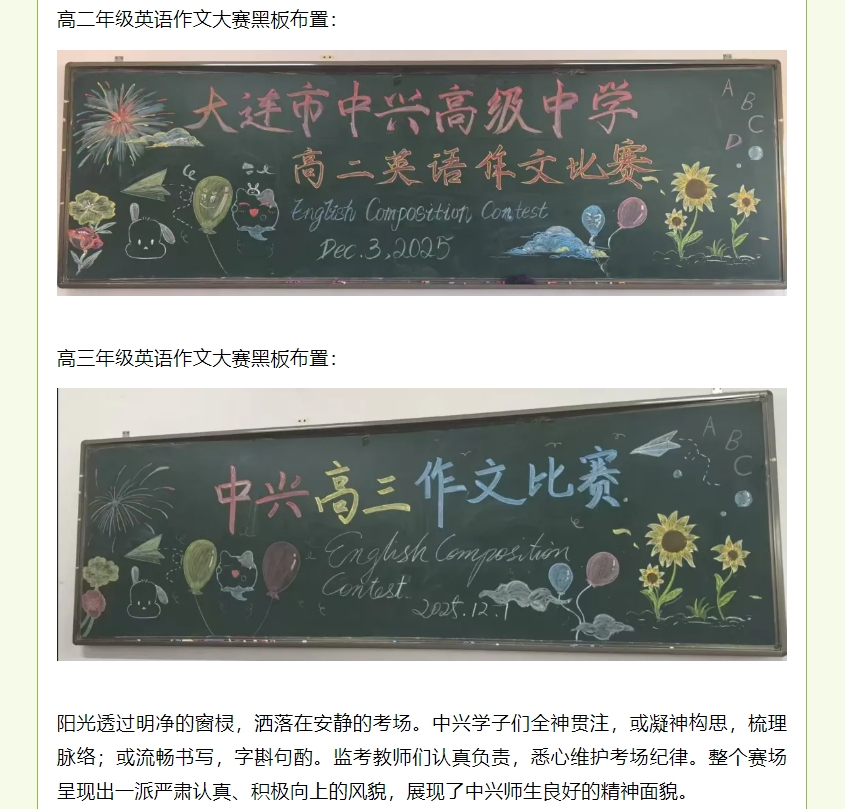 高二年级英语作文大赛黑板布置：
大连市中兴高级中学
高二英语作文比赛
English Composition Contest
Dec.3,2025
A
B
C
D
高三年级英语作文大赛黑板布置：
中兴高三作文比赛
English Composition
Contest
2025.12.1
A
B
C
阳光透过明净的窗棂，洒落在安静的考场。中兴学子们全神贯注，或凝神构思，梳理
脉络；或流畅书写，字斟句酌。监考教师们认真负责，悉心维护考场纪律。整个赛场
呈现出一派严肃认真、积极向上的风貌，展现了中兴师生良好的精神面貌。